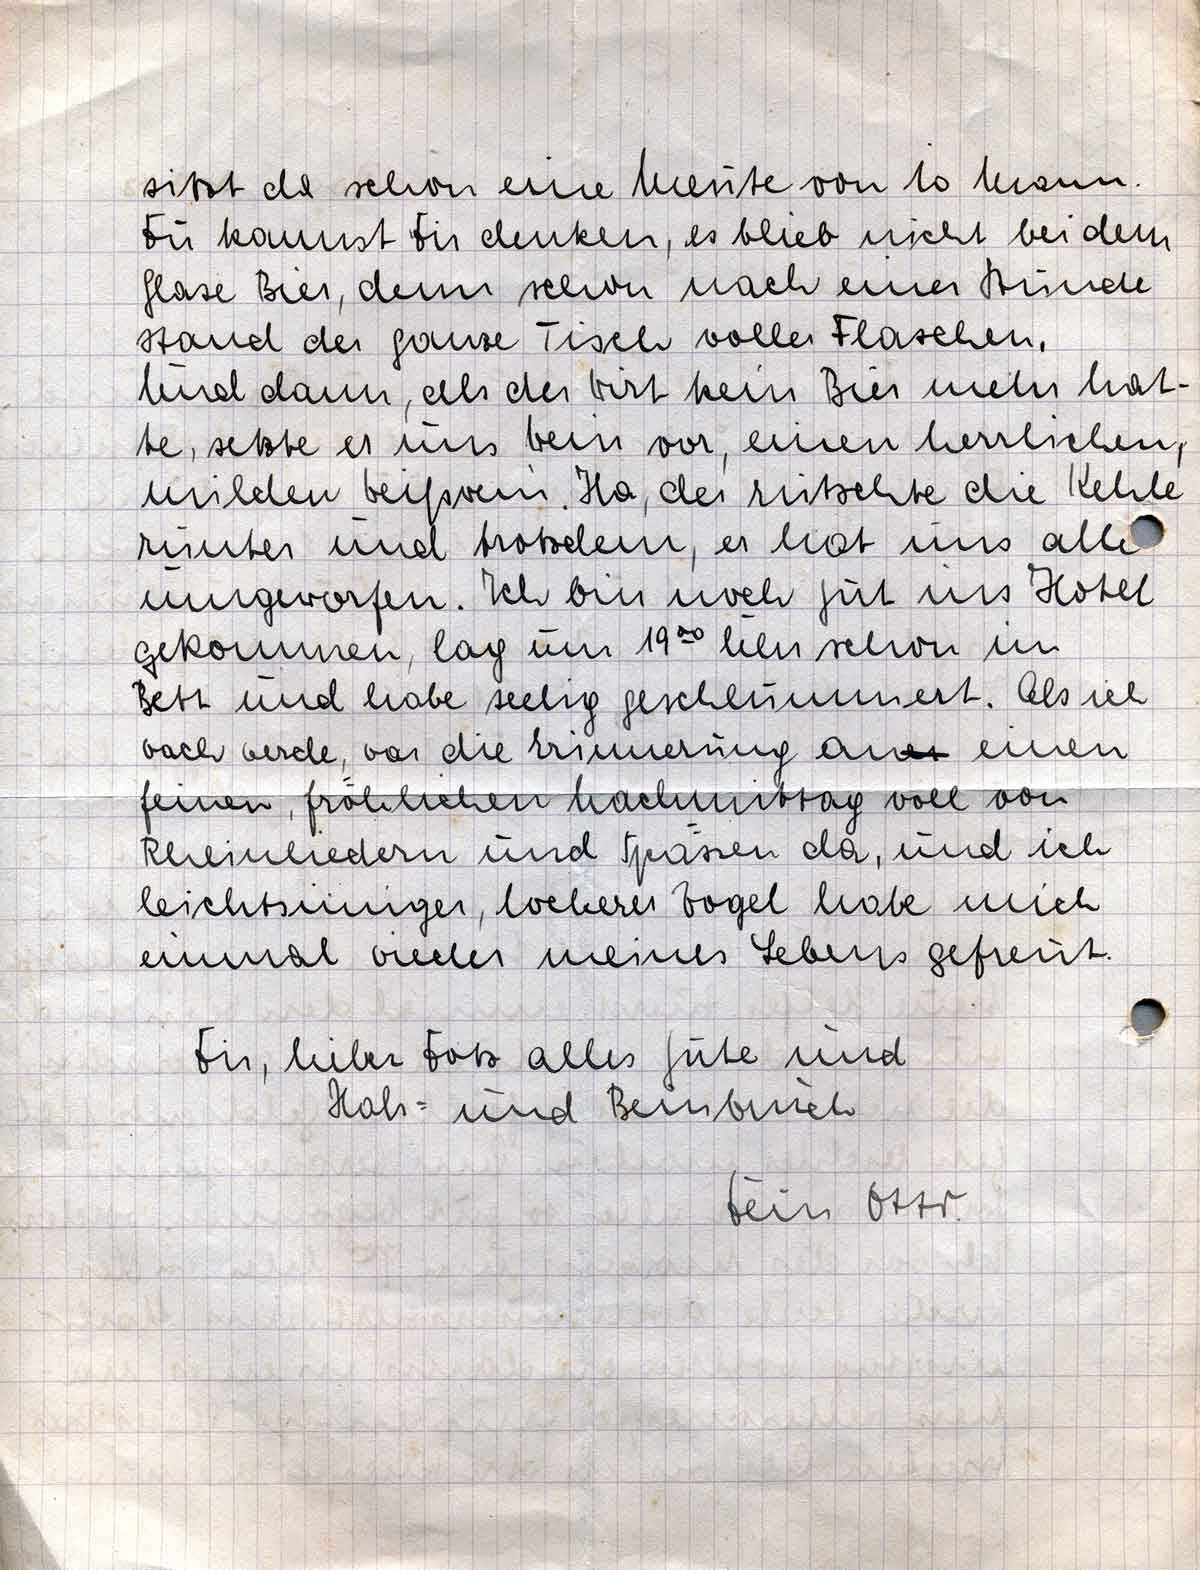 sitzt da schon eine Meute von 10 Mann.
Du kannst Dir denken, es blieb nicht bei dem
Glase Bier, denn schon nach einer Stunde
stand der ganze Tisch voller Flaschen.
Und dann, als der Wirt kein Bier mehr hat-
te, setzte er uns Wein vor, einen herrlichen,
milden Weißwein. Ha, der rutschte die Kehle
runter und trotzdem, er hat uns alle
umgeworfen. Ich bin noch gut ins Hotel
gekommen, lag um 19⁰⁰ Uhr schon im
Bett und habe seelig geschlummert. Als ich
wach werde, war die Erinnerung an einen
feinen, fröhlichen Nachmittag voll von
Rheinliedern und Spässen da, und ich
leichtsinniger, lockerer Vogel habe mich
einmal wieder meines Lebens gefreut.
Dir, lieber alles Gute und
Hals= und Beinbruch
Dein Otto.